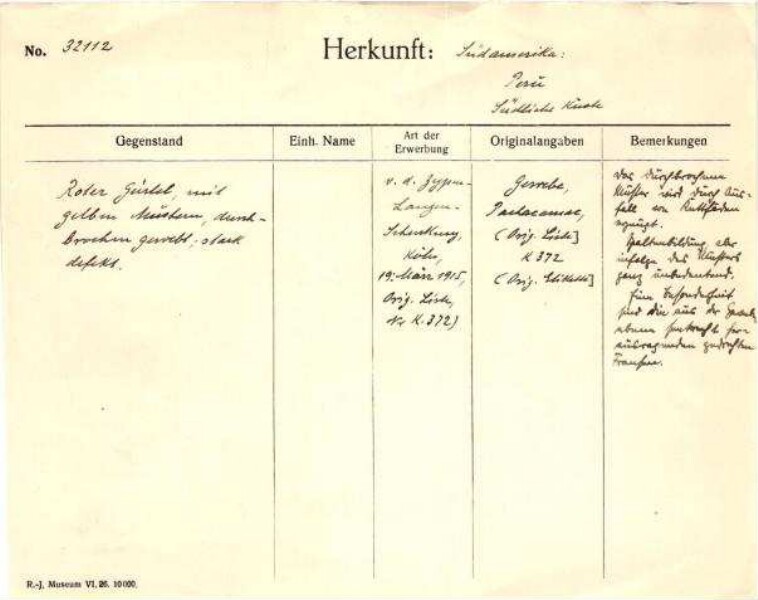 No. 32112
Herkunft: Südamerika:
Peru
Südliche Küste
Gegenstand
Einh. Name
Art der Erwerbung
Originalangaben
Bemerkungen
Roter Gürtel, mit
gelben Mustern, durch-
brochen gewebt, stark
defekt.
v. d. Zypen-
Langen-
Schenkung,
Köln,
19. März 1915,
Orig. Liste,
Nr K. 372)
Gewebe,
Pachacamac,
(Orig. Liste]
K 372
(Orig. Etikette]
Das durchbrochene
Muster wird durch Aus-
fall von Kettfäden
erzeugt.
Spaltenbildung, aber
infolge des Musters
ganz unbedeutend.
Eine Besonderheit
sind die aus der Gewebe
ebene senkrecht her-
ausragenden gedrehten
Fransen.
R.-J. Museum VI. 26. 10000.